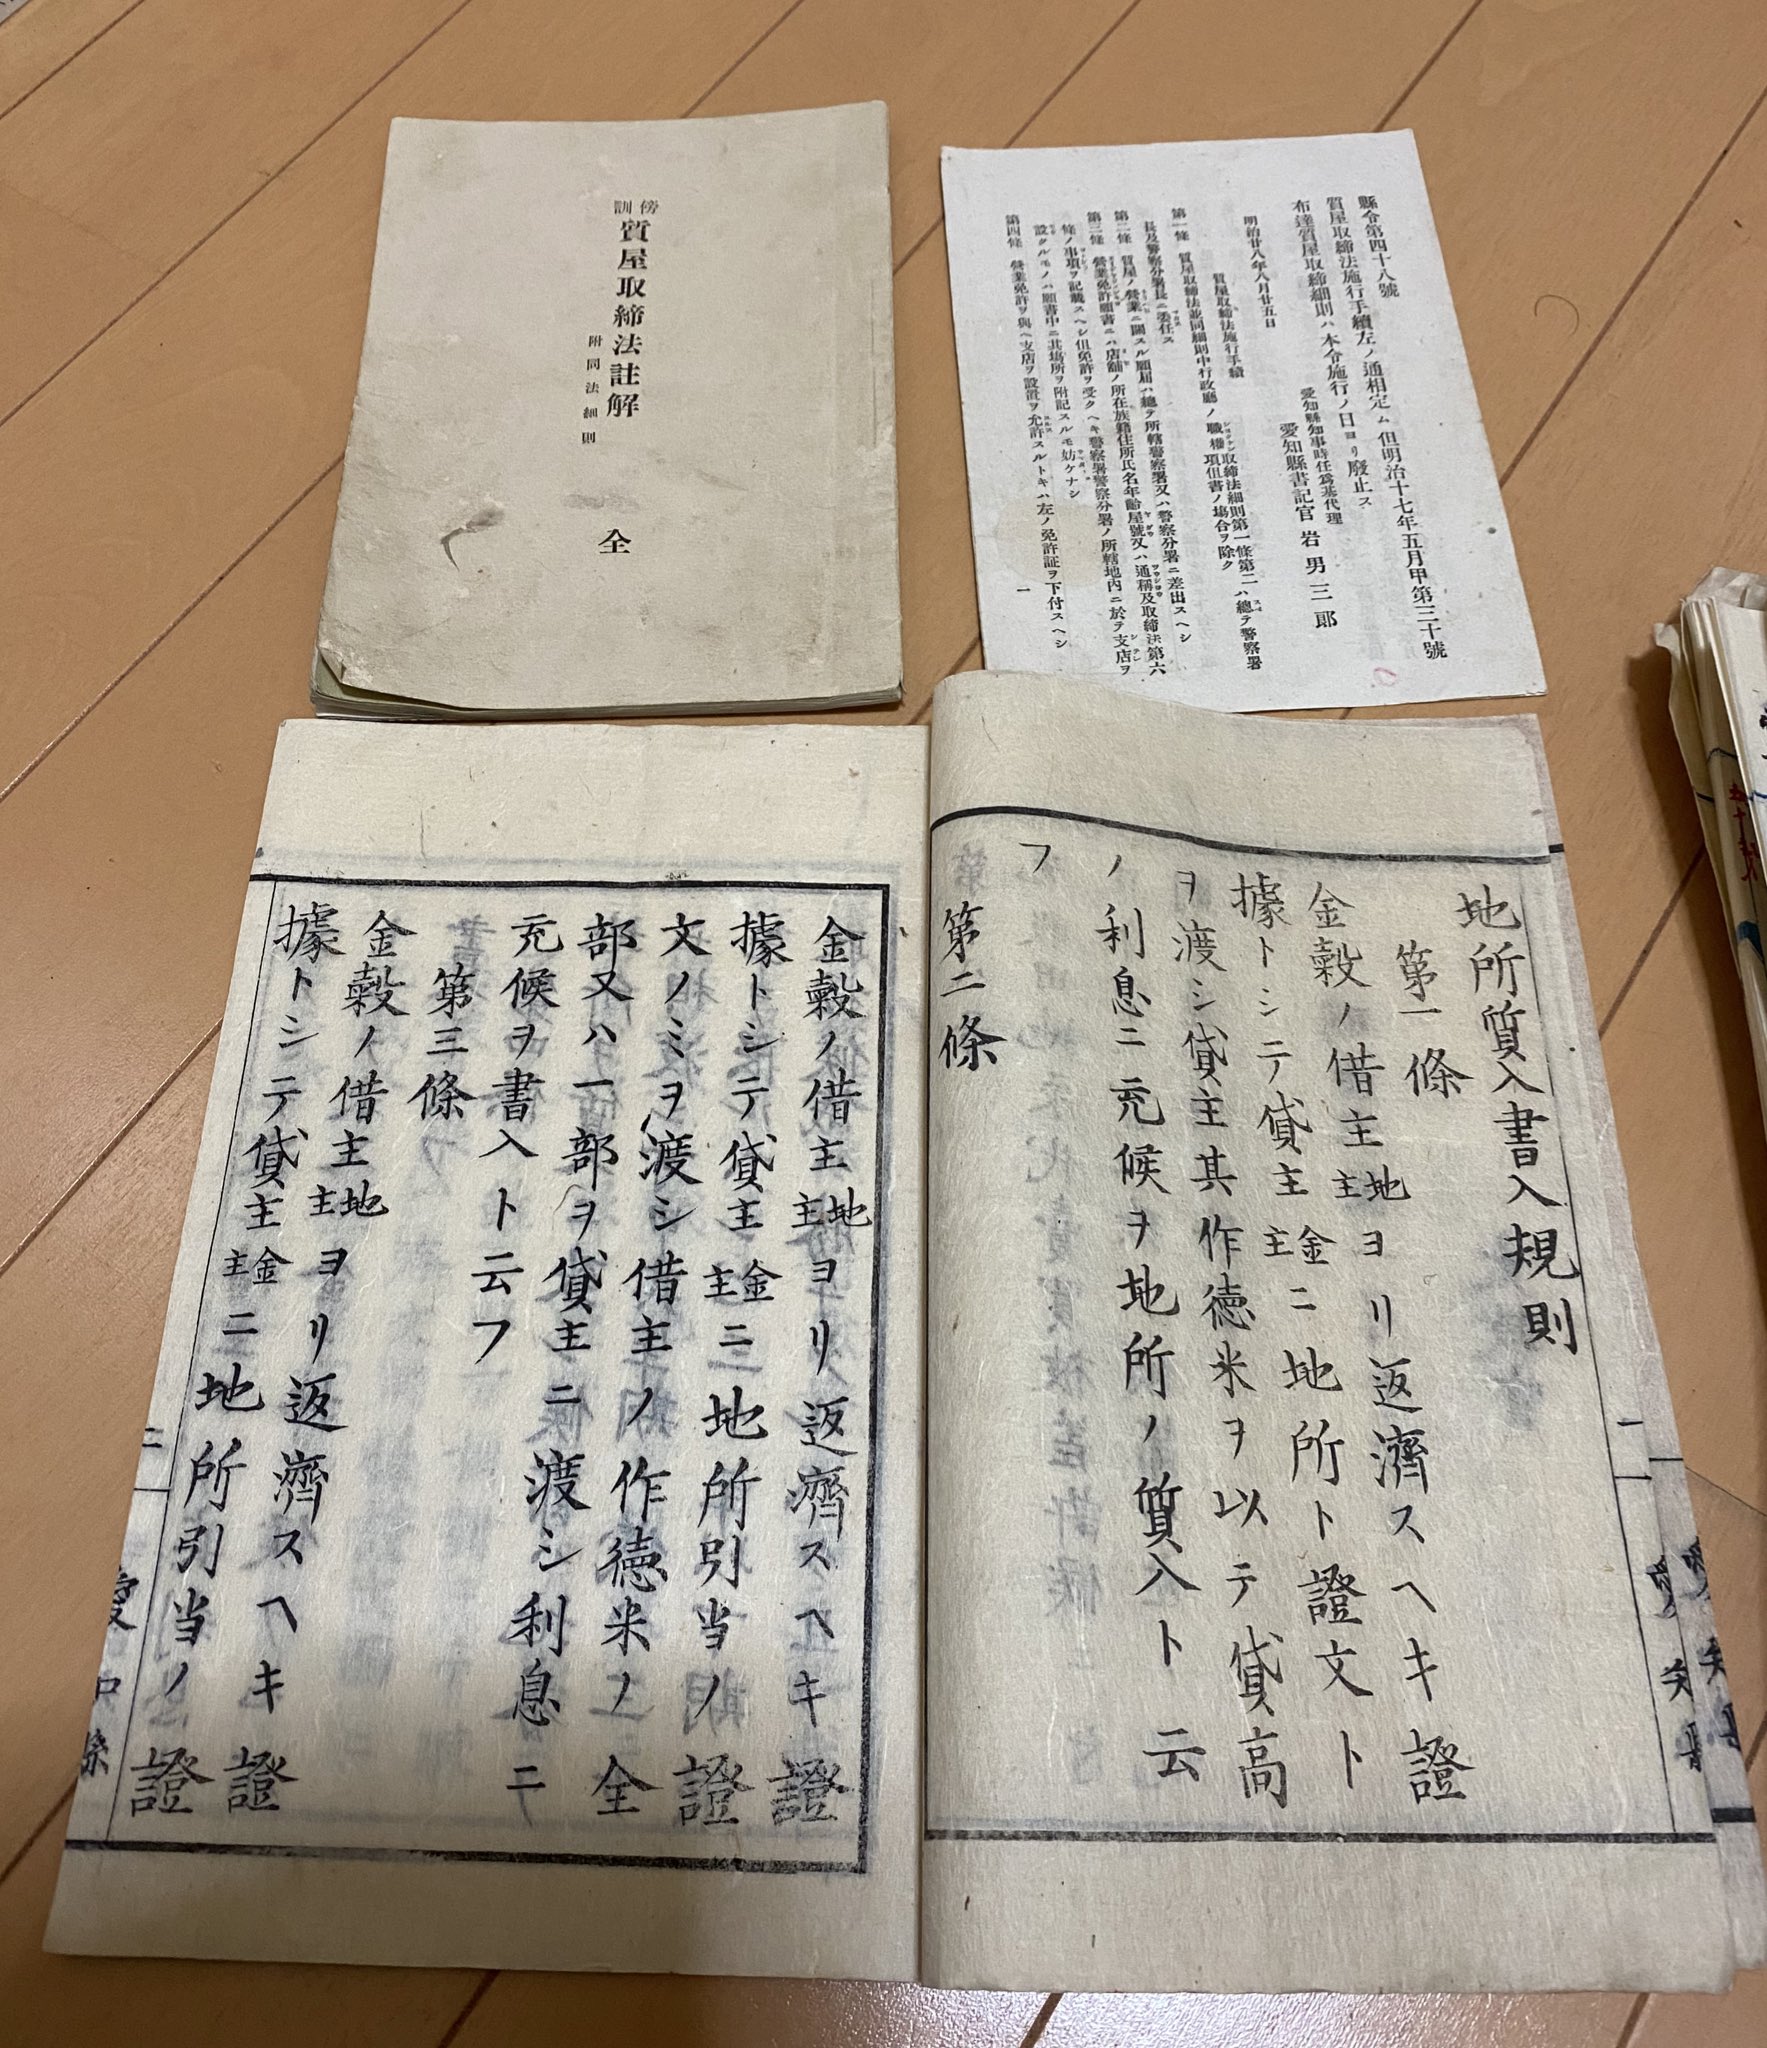 傍訓
質屋取締法註解
附同法細則
全
縣令第四十八號
質屋取締法施行手續左ノ通相定ム但明治十七年五月甲第三十號
布達質屋取締細則ハ本令施行ノ日ヨリ廢止ス
愛知縣知事時任爲基代理
愛知縣書記官岩男三郎
明治廿八年八月廿五日
質屋取締法施行手續
第一條 質屋取締法並同細則中行政廳ノ職權
取締法細則第一條第二
項但書ノ塲合ヲ除ク
ハ總テ警察署
長及警察分署長ニ委任ス
第二條 質屋ノ營業ニ關スル願屆ハ總テ所轄警察署又ハ警察分署ニ差出スヘシ
第三條 營業免許願書ニハ店舖ノ所在族籍住所氏名年齡屋號又ハ通稱及取締法第六
條ノ事項ヲ記載スヘシ但免許ヲ受クヘキ警察署警察分署ノ所轄地内ニ於テ支店ヲ
設クルモノハ願書中ニ其塲所ヲ附記スルモ妨ケナシ
第四條 營業免許ヲ與ヘ支店ヲ設置ヲ允許スルトキハ左ノ免許証ヲ下付スヘシ
一
地所質入書入規則
第一條
金穀ノ借主地主ヨリ返濟スヘキ證
據トシテ貸主金主ニ地所ト證文ト
ヲ渡シ貸主其作徳米ヲ以テ貸高
ノ利息ニ充候ヲ地所ノ質入ト云
フ
第二條
金穀ノ借主地主ヨリ返濟スヘキ證
據トシテ貸主金主ニ地所引当ノ證
文ノミヲ渡シ借主ノ作徳米ノ全
部又ハ一部ヲ貸主ニ渡シ利息ニ
充候ヲ書入ト云フ
第三條
金穀ノ借主地主ヨリ返濟スヘキ證
據トシテ貸主金主ニ地所引当ノ證
二